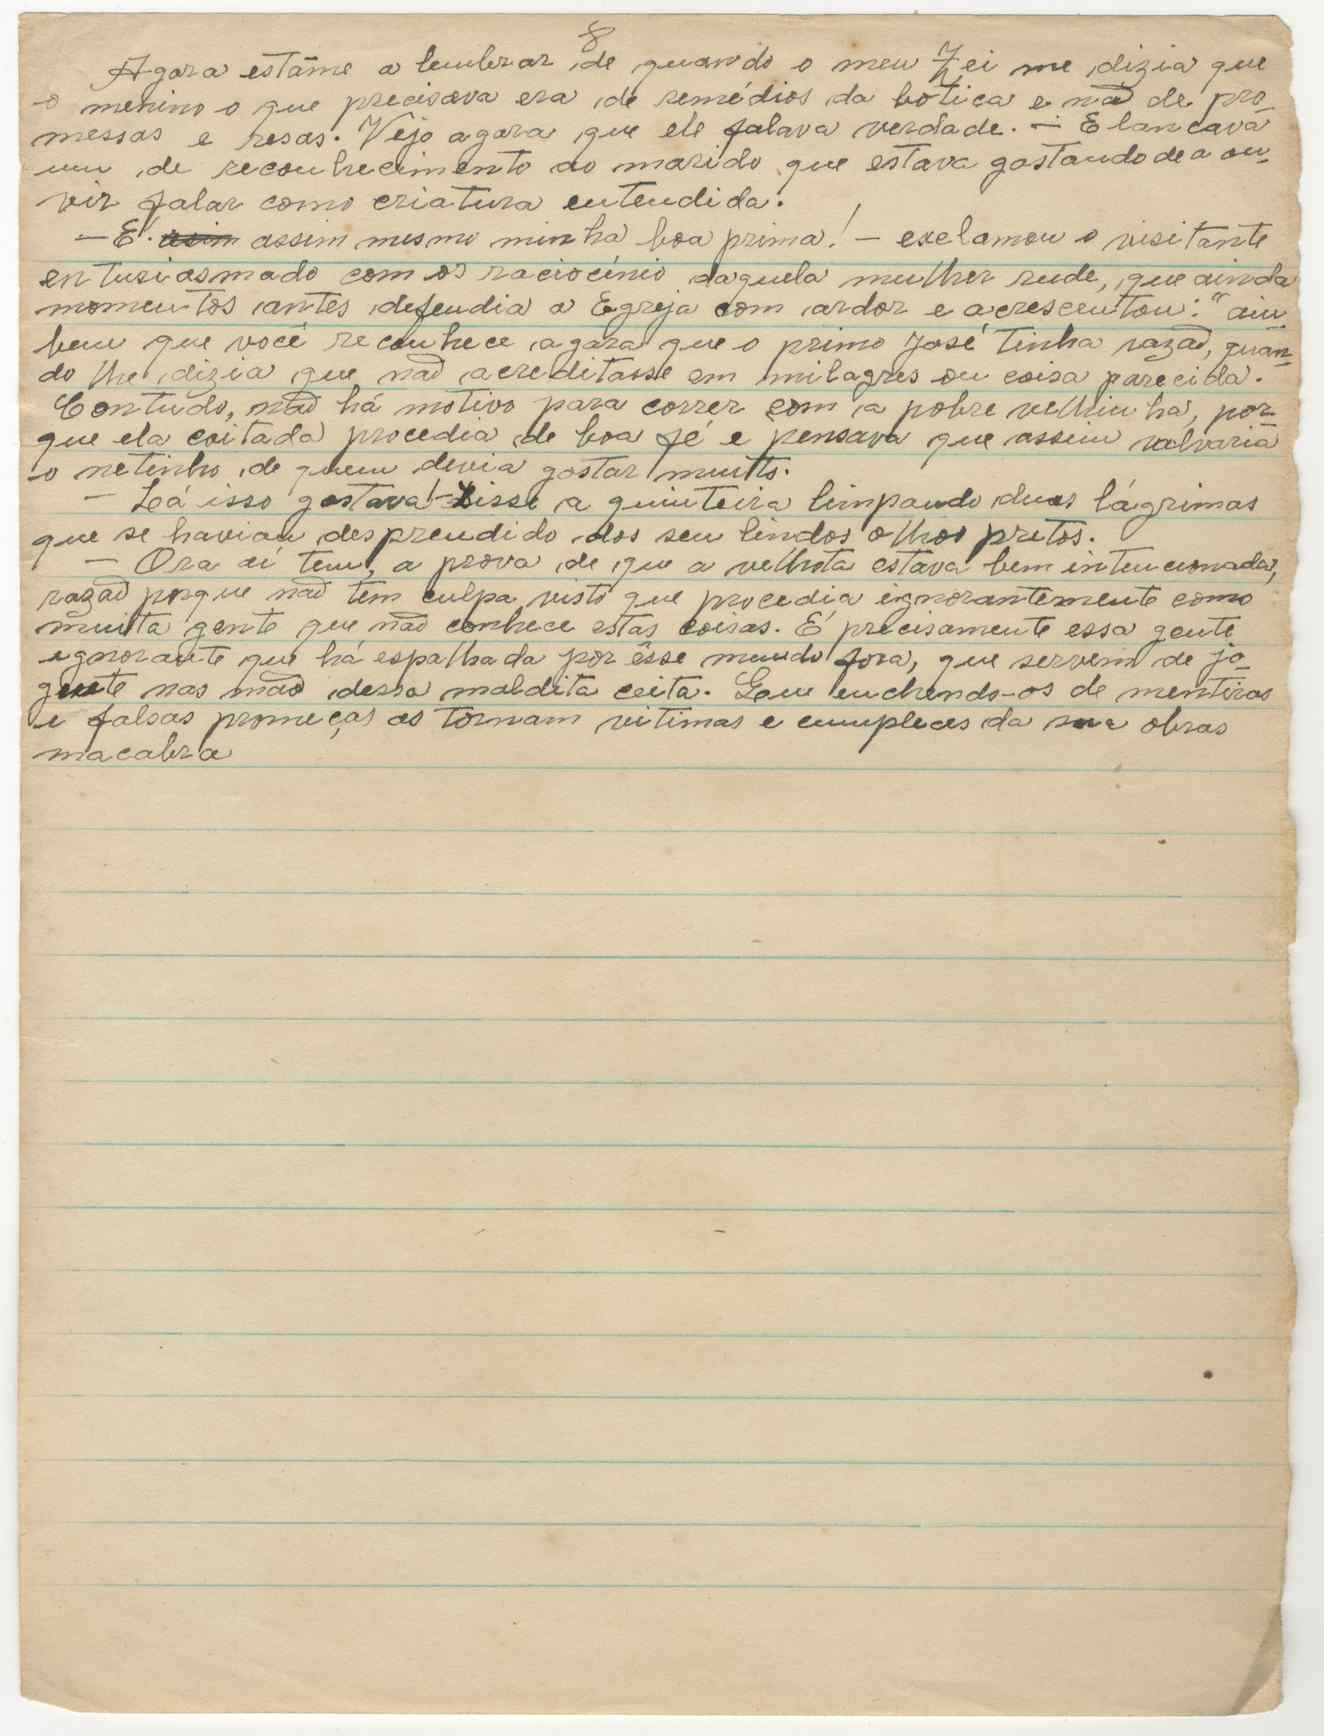 8
Agora estáme a lembrar de quando o meu Zei me dizia que
o menino o que precisava era de remédios da botica e não de pro-
messas e resas. Vejo agora que ele falava verdade. — E lancava
um de reconhecimento ao marido que estava gostando de a ou-
vir falar como criatura entendida.
— E' asim assim mesmo minha boa prima! — exclamou o visitante
entusiasmado com os raciocínio daquela mulher rude, que ainda
momentos antes defendia a Egreja com ardor e acrescentou: "ain-
bem que você reconhece agora que o primo José tinha razão, quan-
do lhe dizia que não acreditasse em milagres ou coisa parecida.
Contudo, não há motivo para correr com a pobre velhinha, por-
que ela coitada procedia de boa fé e pensava que assim salvaria
o netinho de quem devia gostar muito.
— Lá isso gostava! - disse a quinteira limpando duas lágrimas
que se haviam desprendido dos seu lindos olhos pretos.
— Ora aí tem, a prova de que a velhota estava bem intencionada,
razão porque não tem culpa visto que procedia ignorantemente como
muita gente que não conhece estas coisas. É precisamente essa gente
ignorante que há espalhada por êsse mundo fora, que servem de jo-
guete nas mão dessa maldita ceita. Que enchendo-os de mentiras
e falsas promeças os tornam vitimas e cumplices da sua obras
macabra